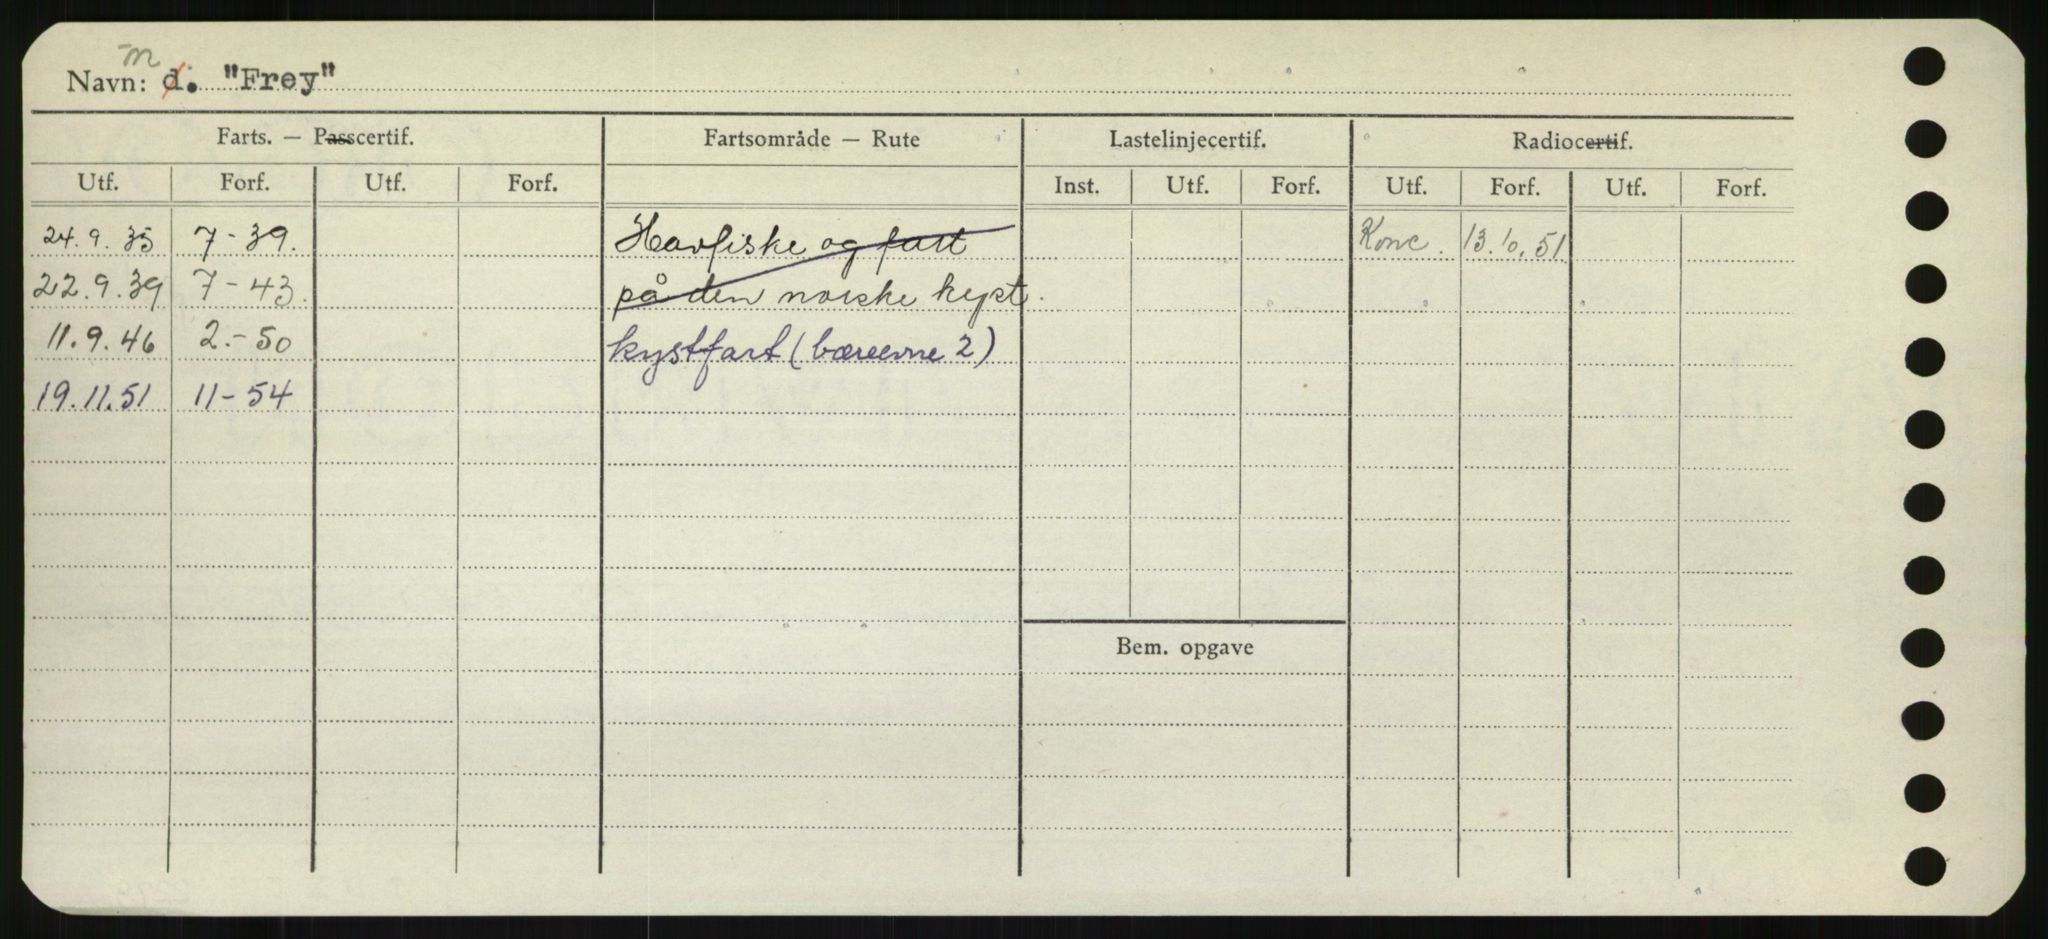 m
Navn: d. "Frøy"
Farts. — Passcertif. Fartsområde — Rute Lastelinjecertif. Radiocertif.
Utf. Forf. Utf. Forf. Inst. Utf. Forf. Utf. Forf. Utf. Forf.
24.9.35 7-39. Havfiske og fart Konc. 13.10.51
22.9.39 7-43. på den norske kyst.
11.9.46 2.-50 kystfart (bæreevne 2)
19.11.51 11-54
Bem. opgave